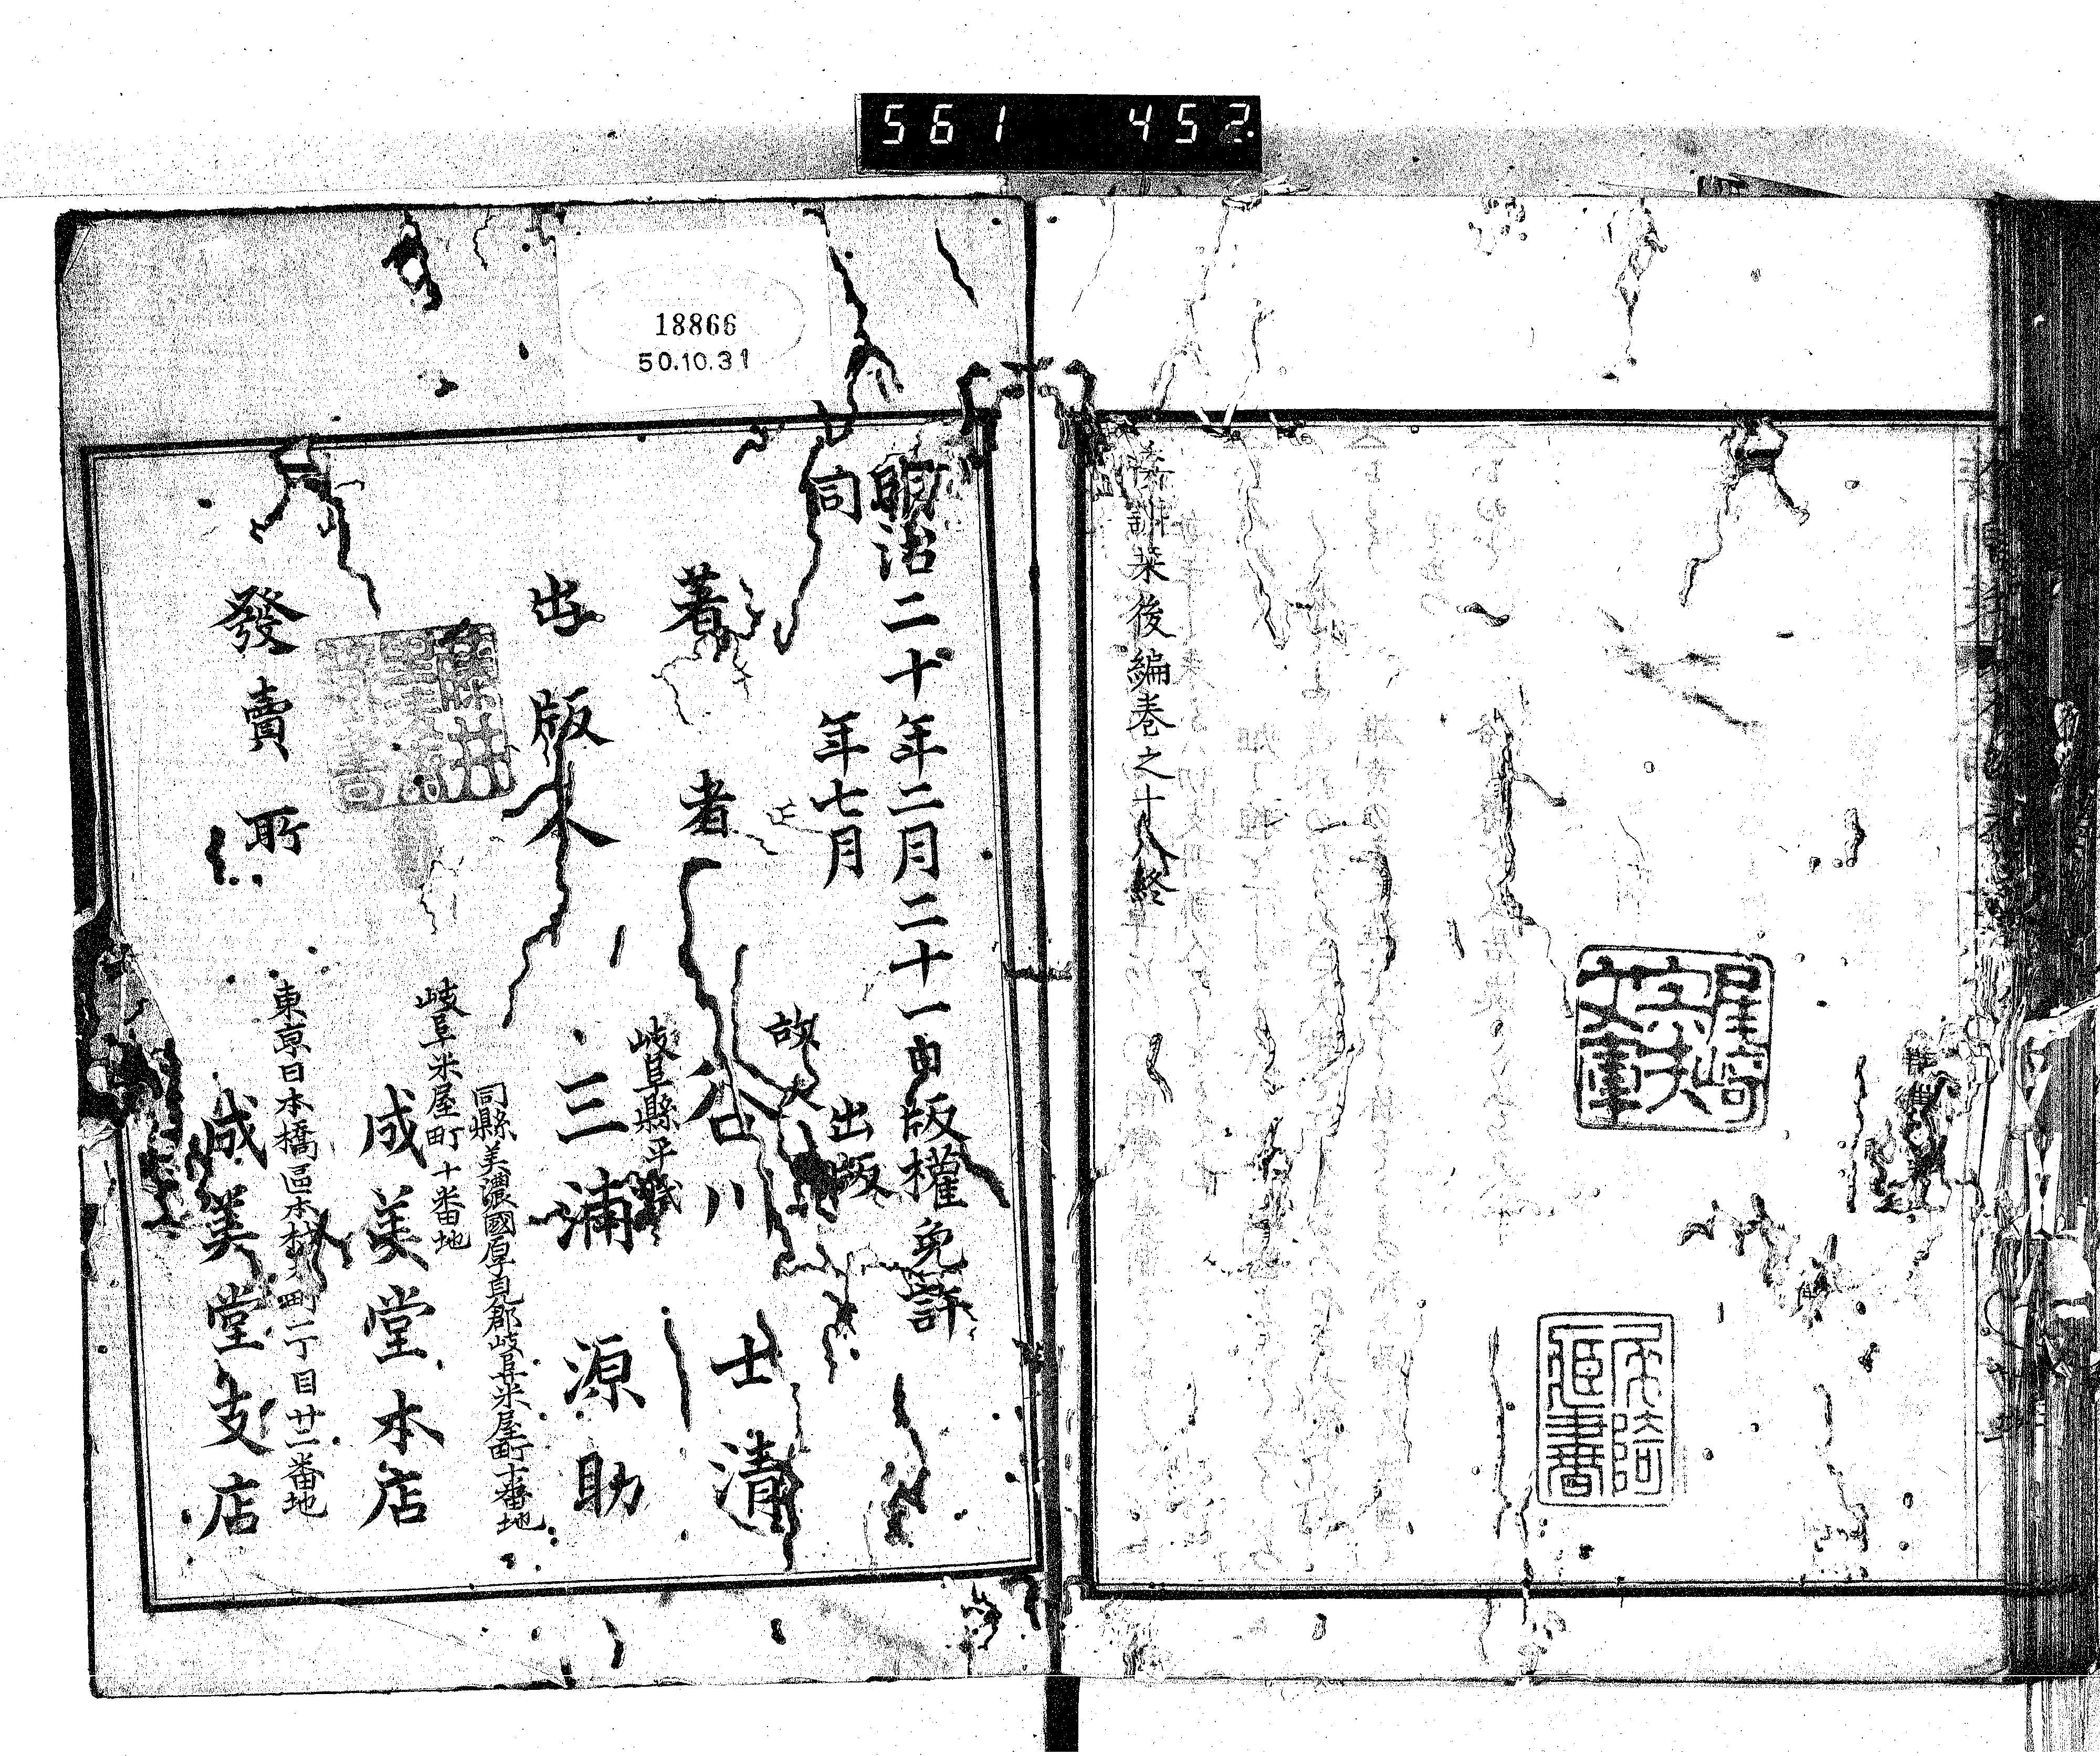 561 452
倭訓栞後編巻之十八終
尾崎
宗夫
文庫
18866
50.10.31
明治二十年二月二十一日版權免許
同 年七月 出版
著者 故人 谷川士清
岐阜縣平民
出版人 三浦源助
同縣美濃國厚見郡岐阜米屋町十番地
岐阜米屋町十番地
成美堂本店
發賣所
東京日本橋區本材木町一丁目廿一番地
成美堂支店